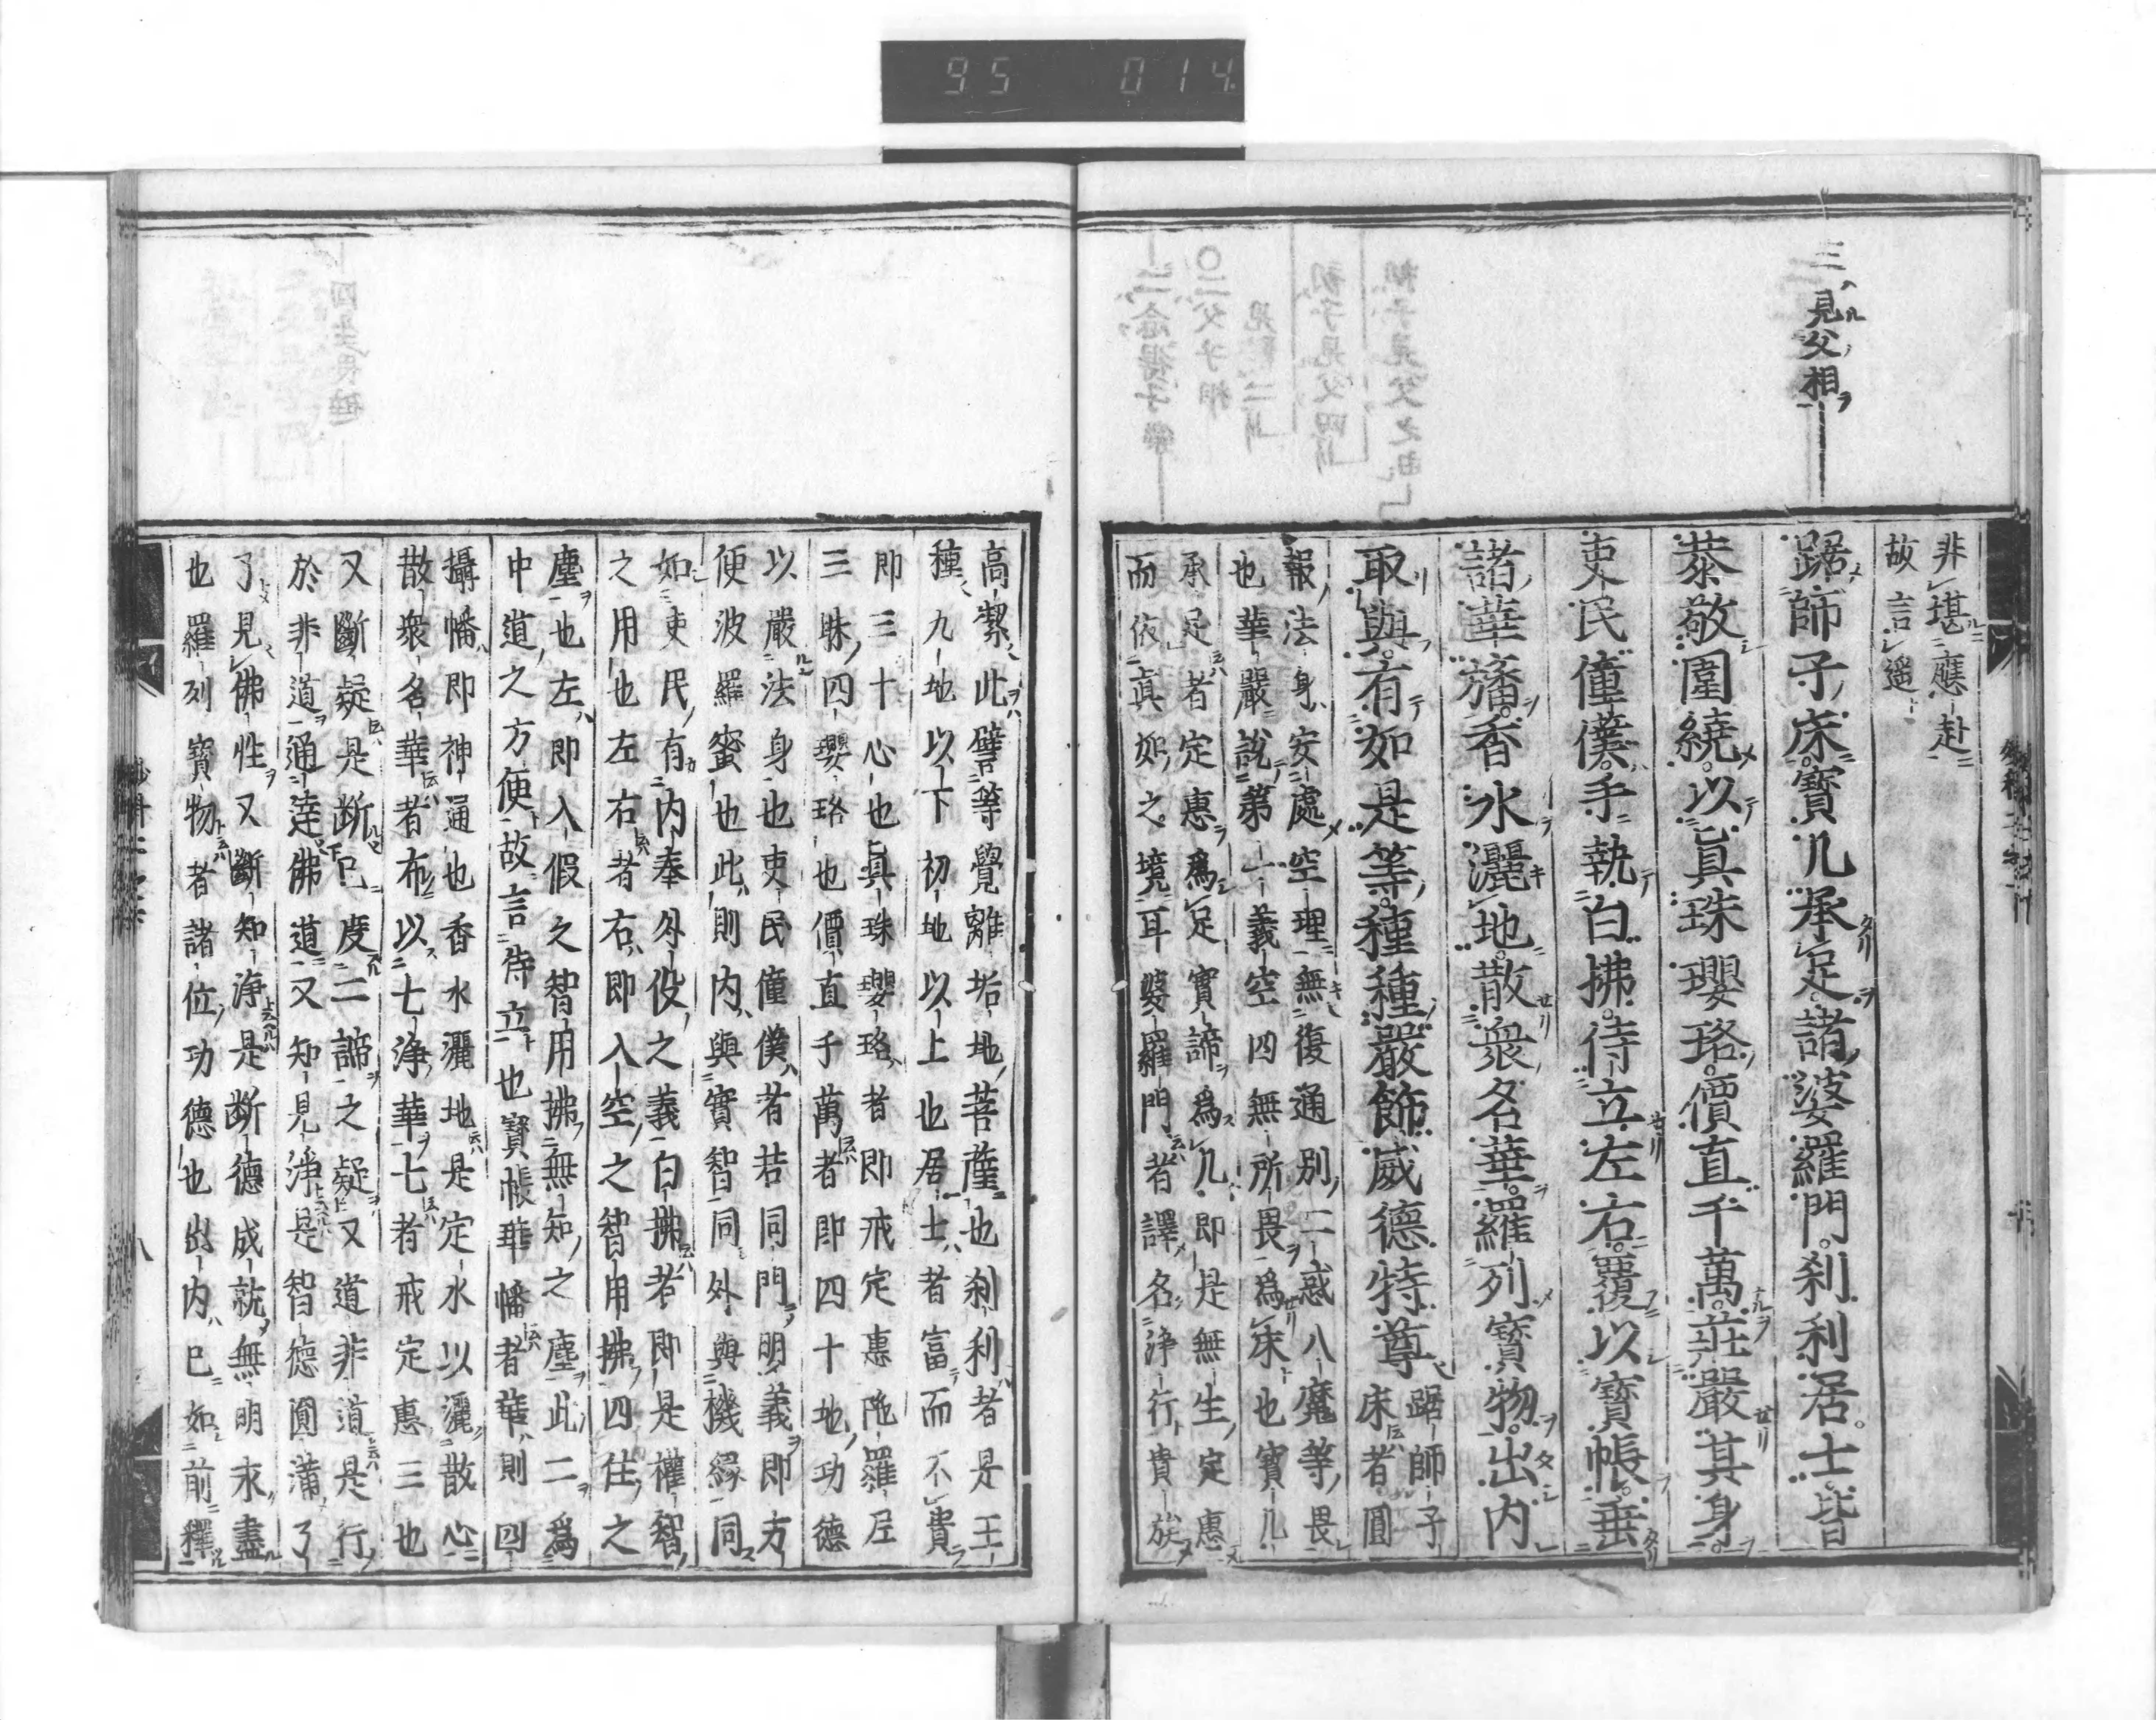 95 014
三見父相
非堪應赴
故言遥
踞師子床寶几承足諸婆羅門刹利居士皆
恭敬圍繞以真珠瓔珞價直千萬莊嚴其身
吏民僮僕手執白拂侍立左右覆以寶帳垂
諸華旛香水灑地散衆名華羅列寶物出内
取與有如是等種種嚴飾威德特尊
踞師子
床者圓
報法身安處空理無復通別二惑八魔等畏
也華嚴說第一義空四無所畏爲床也寶几
承足者定惠爲足實諦爲几即是無生定惠
而依真如之境耳婆羅門者譯名淨行貴族
高繫此譬等覺離垢地菩薩也刹利者是王
種九地以下初地以上也居士者富而不貴
即三十心也真珠瓔珞者即戒定惠陁羅尼
三昧四瓔珞也價直千萬者即四十地功德
以嚴法身也吏民僮僕者若同門明義即方
便波羅蜜也此則内與實智同外與機緣同
如吏民有内奉外役之義白拂者即是權智
之用也左右者右即入空之智用拂四住之
塵也左即入假之智用拂無知之塵此二爲
中道之方便故言侍立也寶帳華幡者華則四
攝幡即神通也香水灑地是定水以灑散心
散衆名華者布以七淨華七者戒定惠三也
又斷疑是斷已度二諦之疑又道非道是行
於非道通達佛道又知見淨是智德圓滿了
了見佛性又斷知淨是断德成就無明永盡
也羅列寶物者諸位功德也出内已如前釋
八